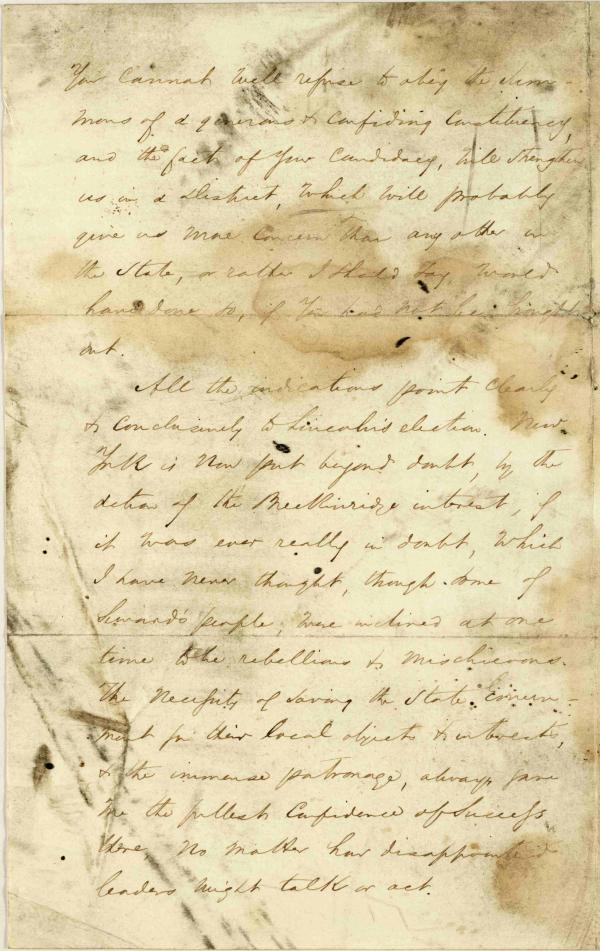 You cannot well refuse to obey the sum-
mons of a generous & confiding constituency,
and the fact of your candidacy, will strengthen
us in a District, which will probably
give us more concern than any other in
the State, or rather I should say would
have done so, if you had not been brought
out.
All the indications point clearly
& conclusively to Lincoln's election. New
York is now put beyond doubt, by the
action of the Breckinridge interest, if
it was ever really in doubt, which
I have never thought, though some of
Seward's people, were inclined at one
time to be rebellious & mischievous.
The necessity of saving the State
for their local objects & interests,
& the immense patronage, always gave
me the fullest confidence of success
there, no matter how disappointed
leaders might talk or act.